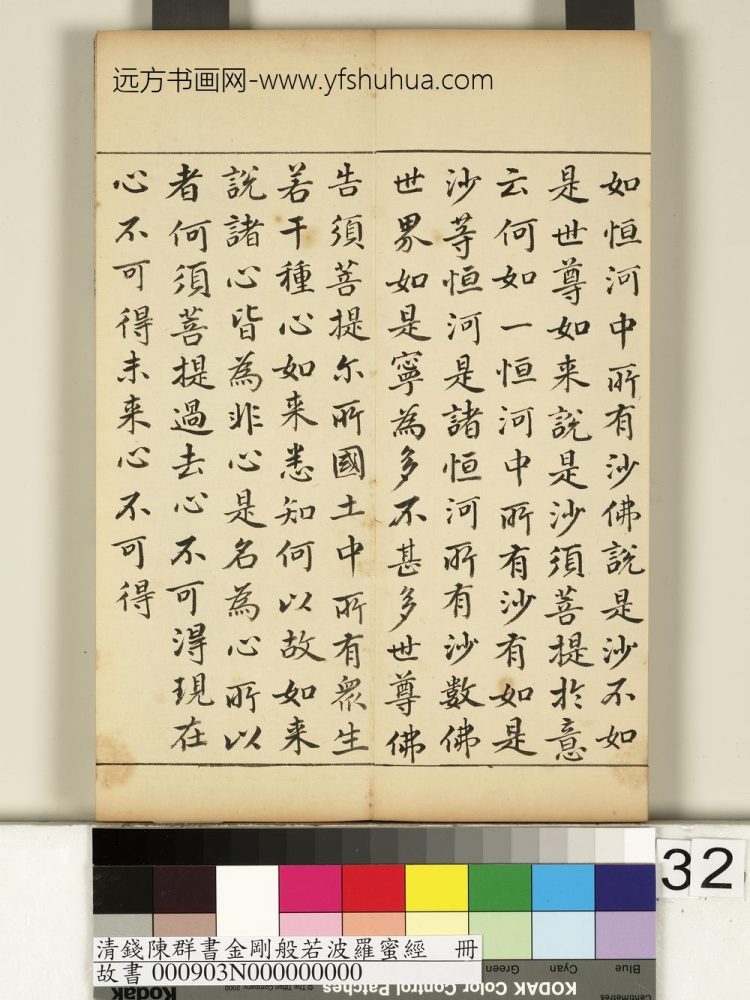 远方书画网-www.yfshuhua.com
如恒河中所有沙佛說是沙不如
是世尊如来說是沙須菩提扵意
云何如一恒河中所有沙有如是
沙等恒河是諸恒河所有沙數佛
世界如是寧為多不甚多世尊佛
告須菩提尔所國土中所有眾生
若干種心如来悉知何以故如来
說諸心皆為非心是名為心所以
者何須菩提過去心不可得現在
心不可得未来心不可得
32
清錢陳群書金剛般若波羅蜜經 冊
故書 000903N000000000
Green
Cyan
Blue
Centimetres
KODAK Color Control Patches
Kodak